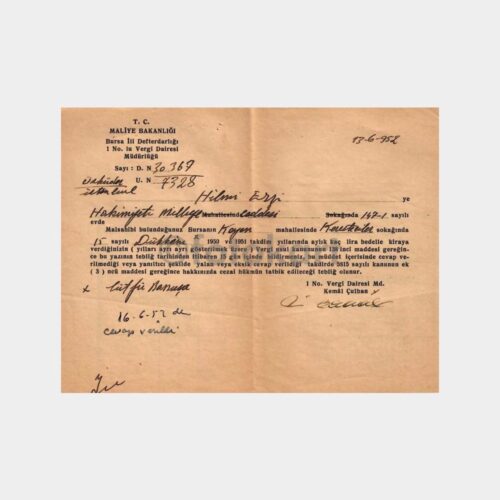 T. C.
MALİYE BAKANLIĞI
Bursa İli Defterdarlığı
1 No. lu Vergi Dairesi
Müdürlüğü
13-6-952
Sayı : D. N 30 367
U. N 7328
Hilmi ye
Hakimiyeti Milliye Mahallesinde caddesi Sokağında 147-1 sayılı
evde
Malsahibi bulunduğunuz Bursanın mahallesinde sokağında
15 sayılı Dükkânı 1950 1951 takdim yıllarında aylık kaç lira bedelle kiraya
verildiğinin ( yılları ayrı ayrı gösterilmek üzere ) Vergi usul kanununun 138 inci maddesi gereğin-
ce bu yazının tebliğ tarihinden itibaren gün içinde bildirilmesi, bu müddet içerisinde cevap ve-
rilmediği veya yanıltıcı şekilde yalan veya eksik cevap verildiği takdirde 5815 sayılı kanunun ek
( 3 ) ncü maddesi gereğince hakkınızda cezai hüküm tatbik edileceği tebliğ olunur.
1 No. Vergi Dairesi Md.
Kemâl Çulban
x
16-6-52 de
cevap verildi